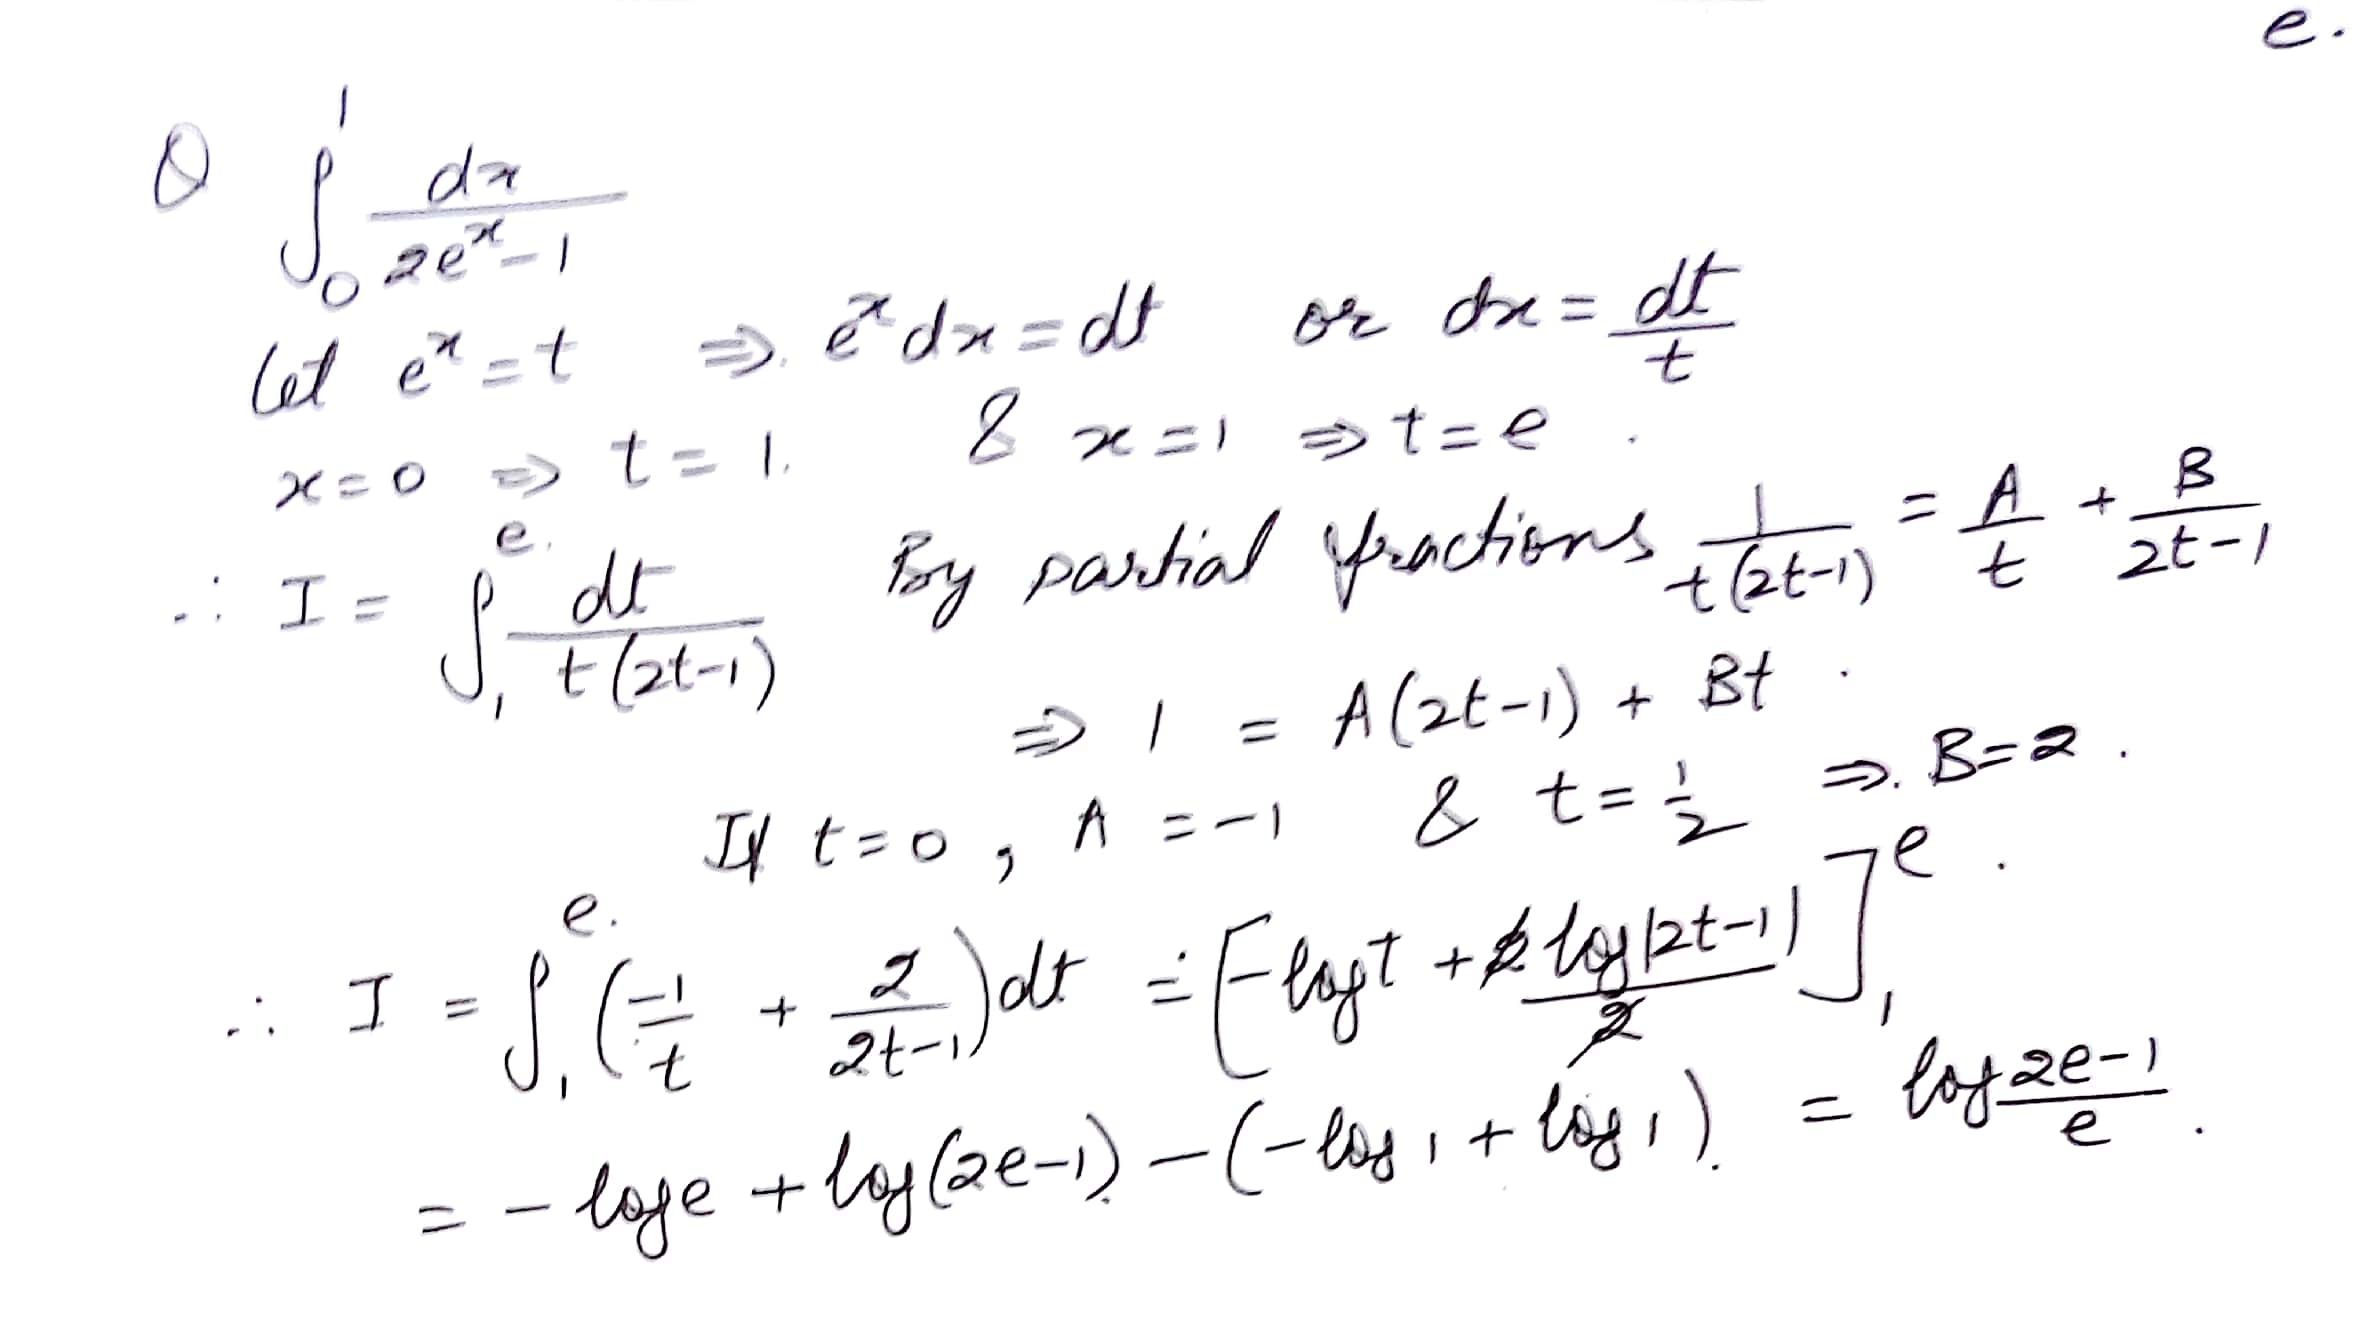 e.
Q ∫₀¹ dx/(2eˣ-1)
Let eˣ = t ⇒ eˣdx = dt or dx = dt/t
x=0 ⇒ t=1. & x=1 ⇒ t=e.
∴ I = ∫₁ᵉ dt/(t(2t-1)) By partial fractions 1/(t(2t-1)) = A/t + B/(2t-1)
⇒ 1 = A(2t-1) + Bt.
If t=0, A=-1 & t=1/2 ⇒ B=2.
∴ I = ∫₁ᵉ (-1/t + 2/(2t-1))dt = [-log t + 2 log|2t-1|/2]₁ᵉ.
= -log e + log(2e-1) - (-log 1 + log 1). = log (2e-1)/e.